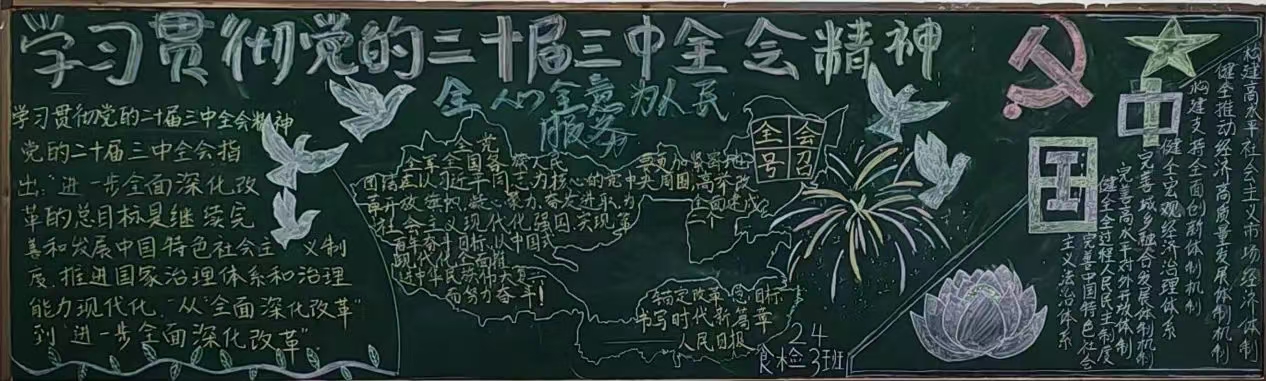 学习贯彻党的二十届三中全会精神
全心全意为人民
服务
学习贯彻党的二十届三中全会精神
党的二十届三中全会指
出:“进一步全面深化改
革的总目标是继续完
善和发展中国特色社会主义制
度,推进国家治理体系和治理
能力现代化。”从“全面深化改革”
到“进一步全面深化改革”。
全党
全军全国各族人民
要更加紧密地
团结在以习近平同志为核心的党中央周围,高举改
革开放旗帜,凝心聚力、奋发进取,为全面建成
社会主义现代化强国实现第
一个
百年奋斗目标,以中国式
现代化全面推
进中华民族伟大复兴
而努力奋斗!
全会
号召
锚定改革总目标
书写时代新篇章
人民日报
食检24
3班
中
国
构建高水平社会主义市场经济体制
健全推动经济高质量发展体制机制
构建支持全面创新体制机制
健全宏观经济治理体系
完善城乡融合发展体制机制
完善高水平对外开放体制
健全全过程人民民主制度
完善中国特色社会
主义法治体系